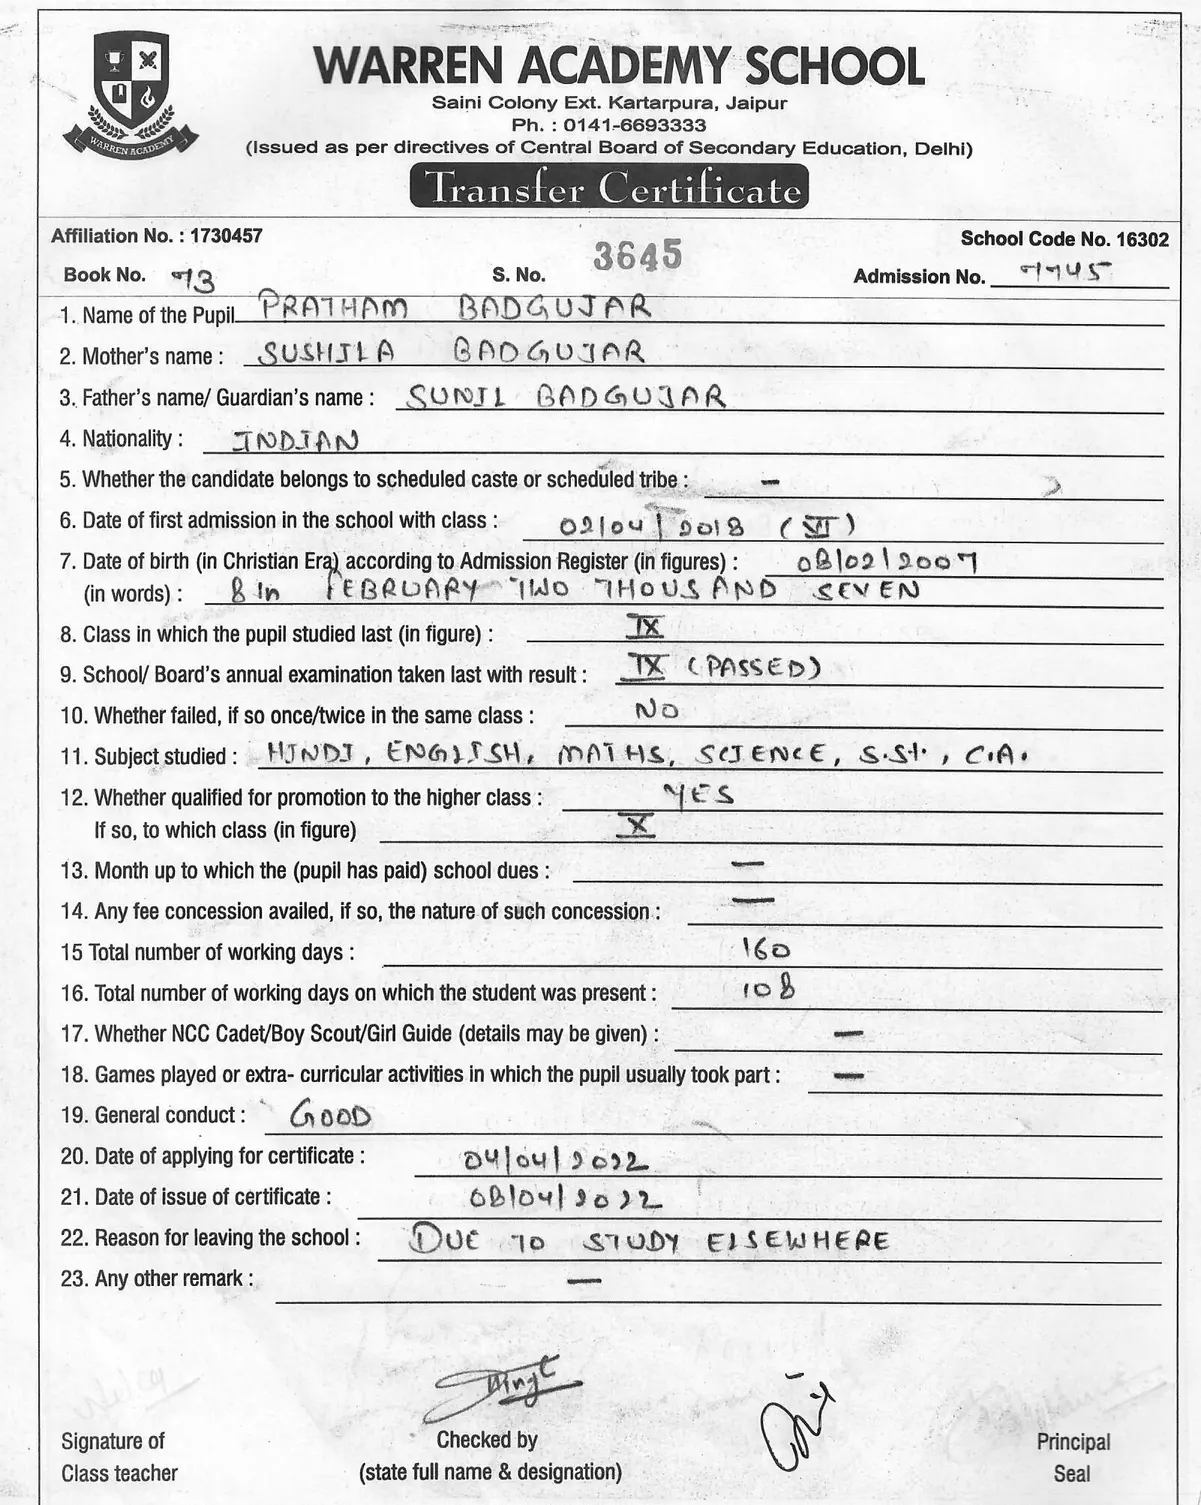 WARREN ACADEMY
WARREN ACADEMY SCHOOL
Saini Colony Ext. Kartarpura, Jaipur
Ph. : 0141-6693333
(Issued as per directives of Central Board of Secondary Education, Delhi)
Transfer Certificate
Affiliation No. : 1730457 School Code No. 16302
Book No. 73 S. No. 3645 Admission No. 7745
1. Name of the Pupil PRATHAM BADGUJAR
2. Mother's name : SUSHILA BADGUJAR
3. Father's name/ Guardian's name : SUNIL BADGUJAR
4. Nationality : INDIAN
5. Whether the candidate belongs to scheduled caste or scheduled tribe : —
6. Date of first admission in the school with class : 02/04/2018 (VI)
7. Date of birth (in Christian Era) according to Admission Register (in figures) : 08/02/2007
(in words) : 8th FEBRUARY TWO THOUSAND SEVEN
8. Class in which the pupil studied last (in figure) : IX
9. School/ Board's annual examination taken last with result : IX (PASSED)
10. Whether failed, if so once/twice in the same class : NO
11. Subject studied : HINDI, ENGLISH, MATHS, SCIENCE, S.St., C.A.
12. Whether qualified for promotion to the higher class : YES
If so, to which class (in figure) X
13. Month up to which the (pupil has paid) school dues : —
14. Any fee concession availed, if so, the nature of such concession : —
15 Total number of working days : 160
16. Total number of working days on which the student was present : 108
17. Whether NCC Cadet/Boy Scout/Girl Guide (details may be given) : —
18. Games played or extra- curricular activities in which the pupil usually took part : —
19. General conduct : GOOD
20. Date of applying for certificate : 04/04/2022
21. Date of issue of certificate : 08/04/2022
22. Reason for leaving the school : DUE TO STUDY ELSEWHERE
23. Any other remark : —
Signature of Checked by Principal
Class teacher (state full name & designation) Seal